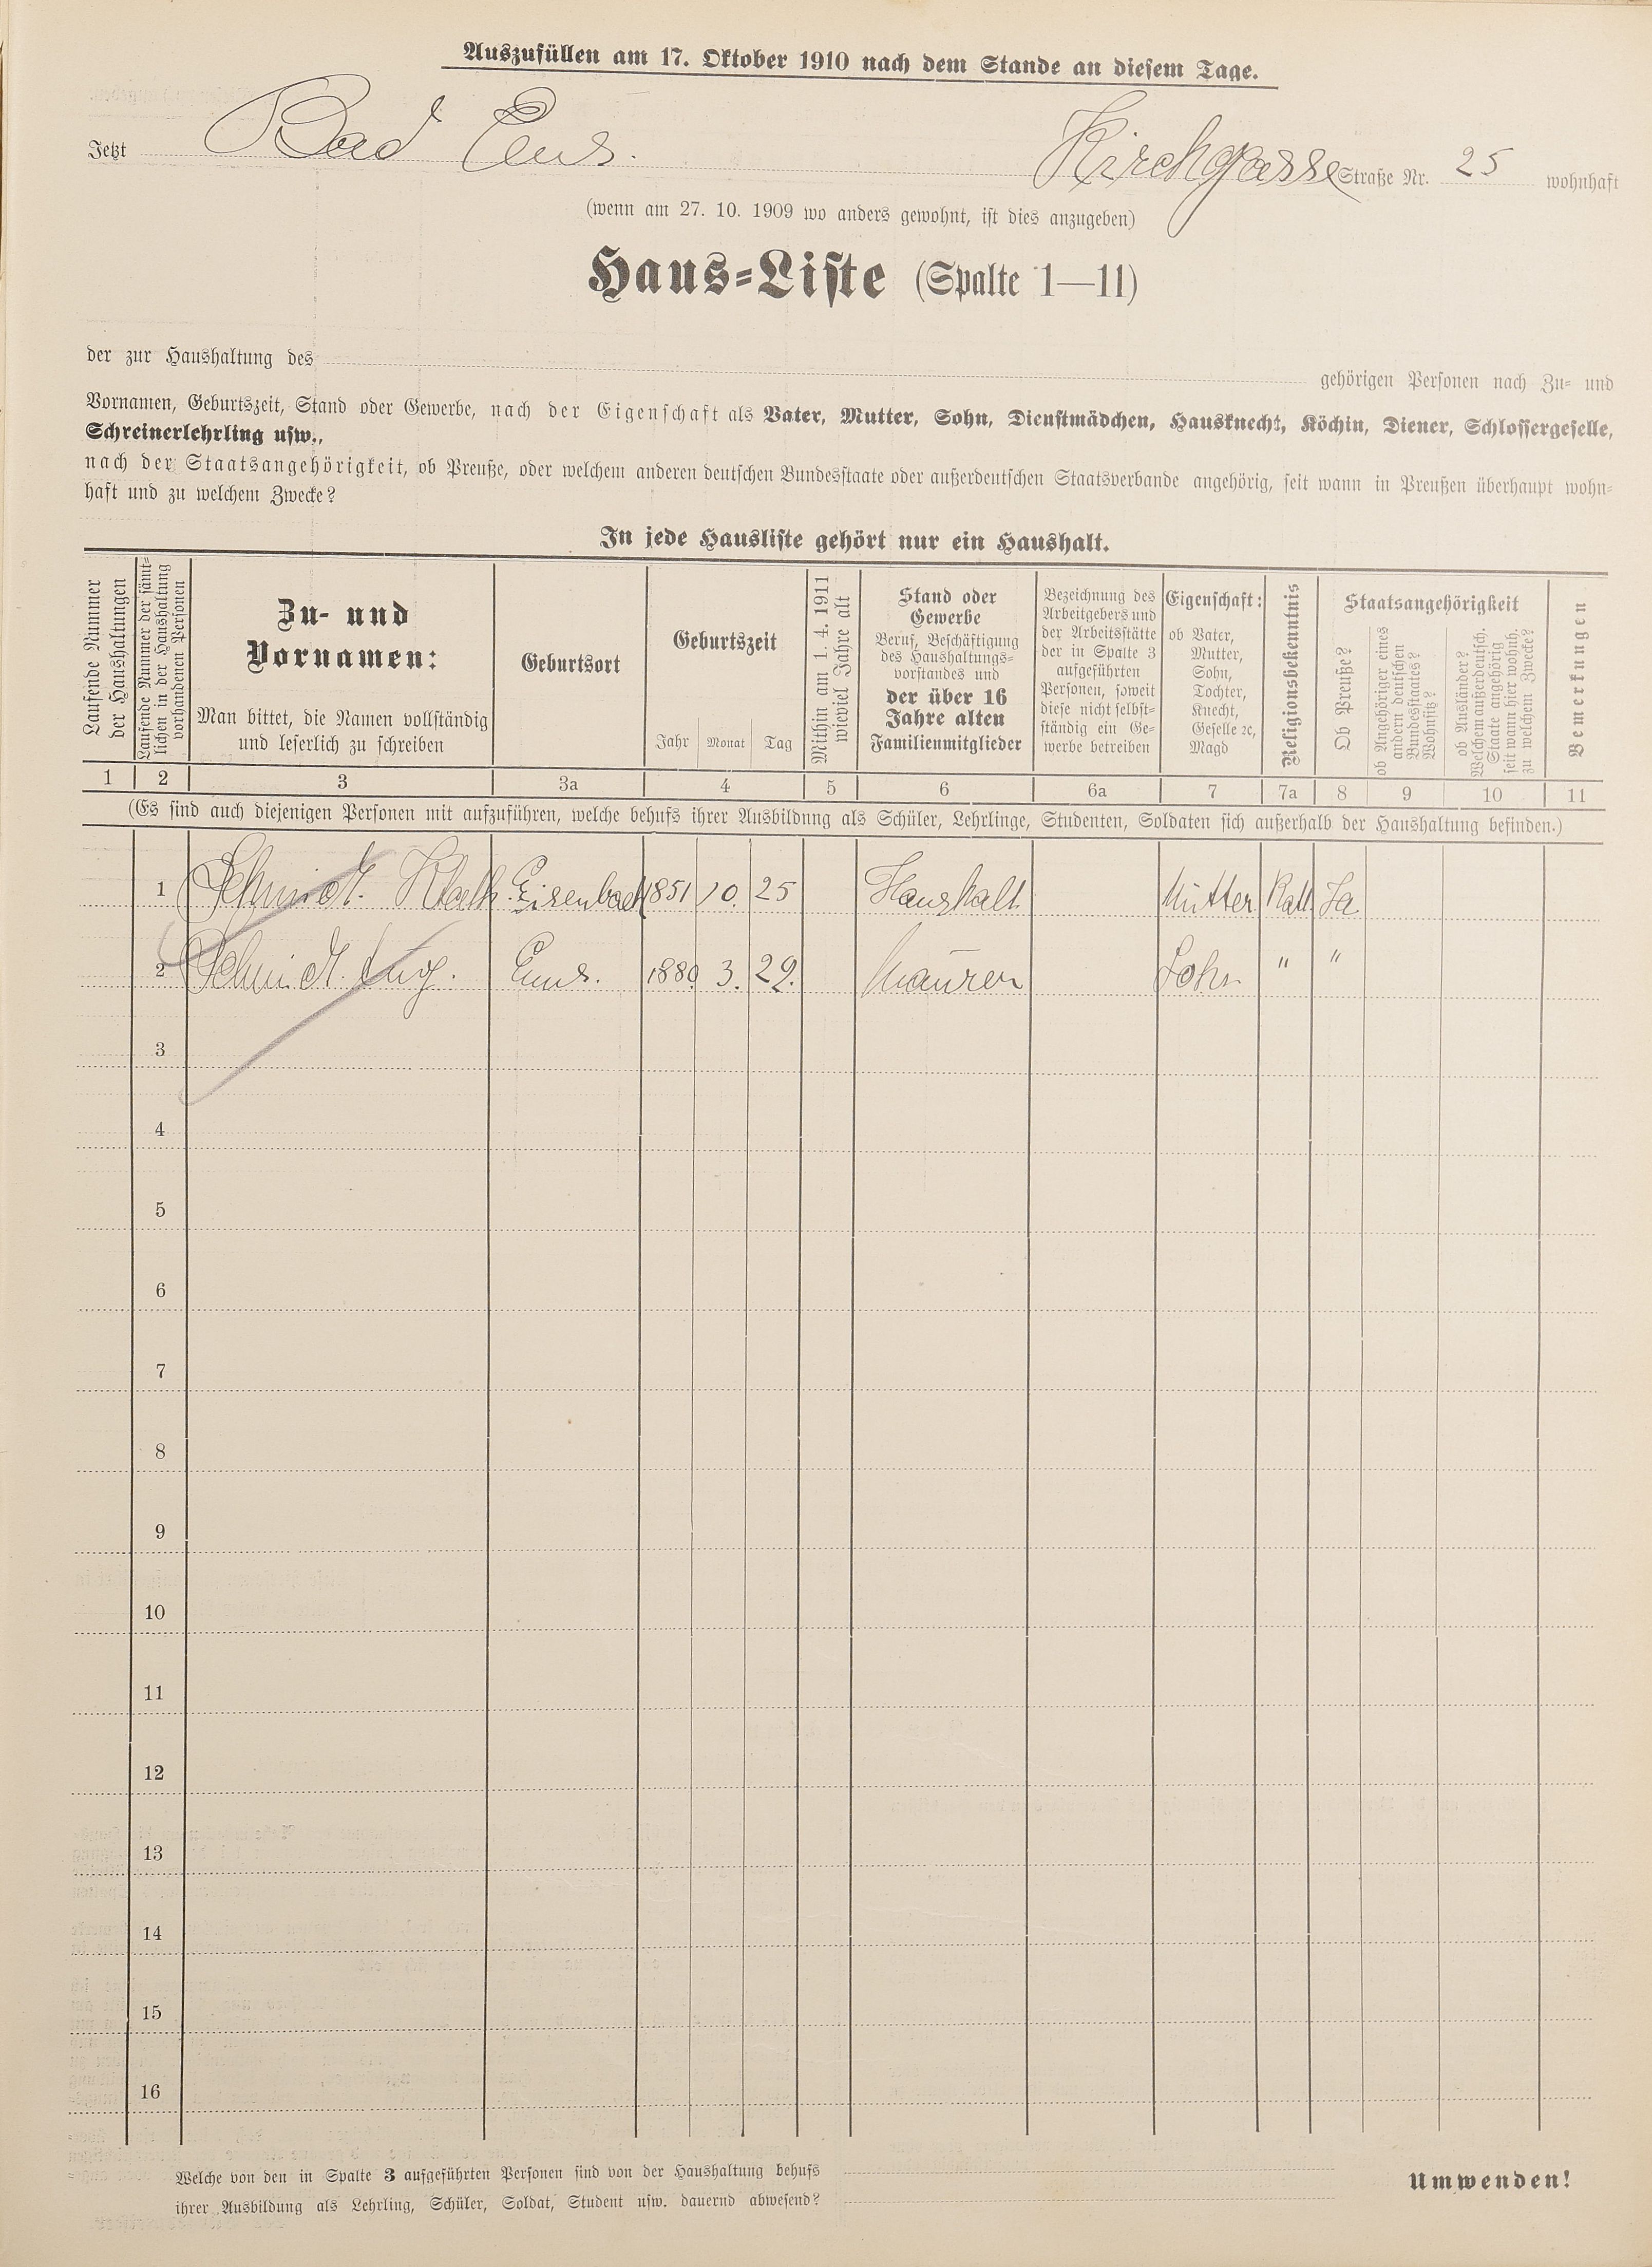 Auszufüllen am 17. Oktober 1910 nach dem Stande an diesem Tage.
Jetzt Bad Ems. Kirchgasse Straße Nr. 25 wohnhaft
(wenn am 27. 10. 1909 wo anders gewohnt, ist dies anzugeben)
Haus-Liste (Spalte 1—11)
der zur Haushaltung des gehörigen Personen nach Zu- und
Vornamen, Geburtszeit, Stand oder Gewerbe, nach der Eigenschaft als Vater, Mutter, Sohn, Dienstmädchen, Hausknecht, Köchin, Diener, Schlossergeselle,
Schreinerlehrling usw.,
nach der Staatsangehörigkeit, ob Preuße, oder welchem anderen deutschen Bundesstaate oder außerdeutschen Staatsverbande angehörig, seit wann in Preußen überhaupt wohn-
haft und zu welchem Zwecke?
In jede Hausliste gehört nur ein Haushalt.
Laufende Nummer
der Haushaltungen
Laufende Nummer der sämt-
lichen in der Haushaltung
vorhandenen Personen
Zu- und
Vornamen:
Man bittet, die Namen vollständig
und leserlich zu schreiben
Geburtsort
Geburtszeit
Jahr Monat Tag
Mithin am 1. 4. 1911
wieviel Jahre alt
Stand oder
Gewerbe
Beruf, Beschäftigung
des Haushaltungs-
vorstandes und
der über 16
Jahre alten
Familienmitglieder
Bezeichnung des
Arbeitgebers und
der Arbeitsstätte
der in Spalte 3
aufgeführten
Personen, soweit
diese nicht selbst-
ständig ein Ge-
werbe betreiben
Eigenschaft:
ob Vater,
Mutter,
Sohn,
Tochter,
Knecht,
Geselle ꝛc,
Magd
Religionsbekenntnis
Staatsangehörigkeit
Ob Preuße?
ob Angehöriger eines
andern deutschen
Bundesstaates?
Wohnsitz?
ob Ausländer?
Welchem außerdeutsch.
Staate angehörig
seit wann hier wohnh.
zu welchem Zwecke?
Bemerkungen
1 2 3 3a 4 5 6 6a 7 7a 8 9 10 11
(Es sind auch diejenigen Personen mit aufzuführen, welche behufs ihrer Ausbildung als Schüler, Lehrlinge, Studenten, Soldaten sich außerhalb der Haushaltung befinden.)
1 Schmidt. Kath. Eisenbach 1851 10. 25 Haushalt Mutter Kath. Ja.
2 Schmidt. Aug. Ems. 1880 3. 29. Maurer Sohn " "
3
4
5
6
7
8
9
10
11
12
13
14
15
16
Welche von den in Spalte 3 aufgeführten Personen sind von der Haushaltung behufs
ihrer Ausbildung als Lehrling, Schüler, Soldat, Student usw. dauernd abwesend?
Umwenden!